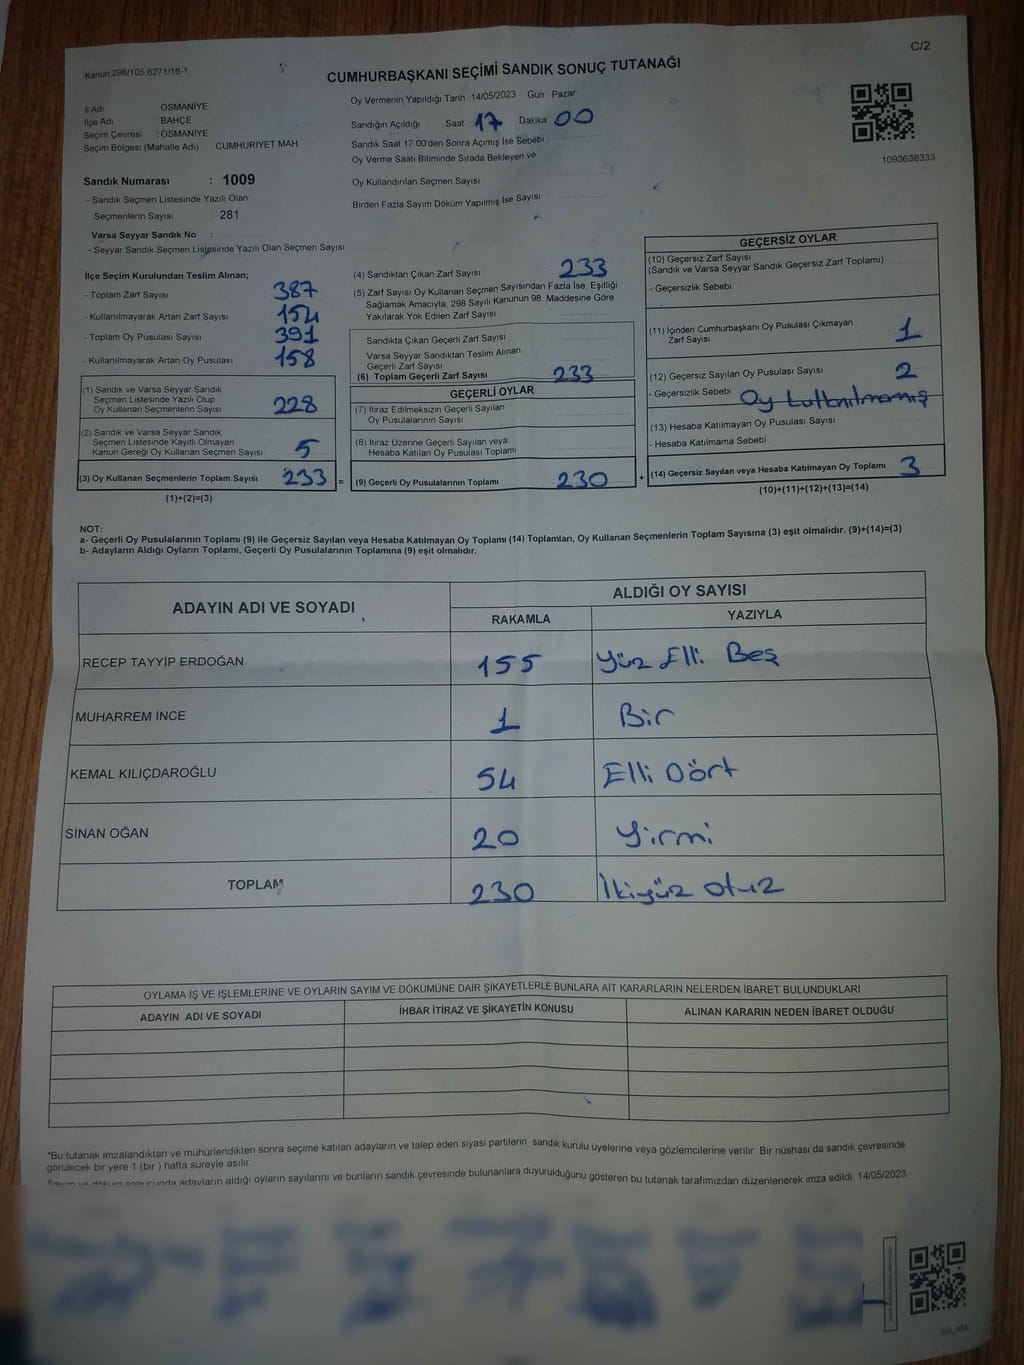 Kanun.298/105.6271/18-1
C/2
CUMHURBAŞKANI SEÇİMİ SANDIK SONUÇ TUTANAĞI
İl Adı OSMANİYE
İlçe Adı BAHÇE
Seçim Çevresi : OSMANİYE
Seçim Bölgesi (Mahalle Adı) CUMHURİYET MAH
Sandık Numarası : 1009
- Sandık Seçmen Listesinde Yazılı Olan
Seçmenlerin Sayısı : 281
Varsa Seyyar Sandık No :
- Seyyar Sandık Seçmen Listesinde Yazılı Olan Seçmen Sayısı
Oy Vermenin Yapıldığı Tarih 14/05/2023 Gün Pazar
Sandığın Açıldığı Saat 17 Dakika 00
Sandık Saat 17:00'den Sonra Açımış İse Sebebi
Oy Verme Saati Bitiminde Sırada Bekleyen ve
Oy Kullandırılan Seçmen Sayısı
Birden Fazla Sayım Döküm Yapılmış İse Sayısı
1093638333
İlçe Seçim Kurulundan Teslim Alınan;
- Toplam Zarf Sayısı 387
- Kullanılmayarak Artan Zarf Sayısı 154
- Toplam Oy Pusulası Sayısı 391
- Kullanılmayarak Artan Oy Pusulası 158
(1) Sandık ve Varsa Seyyar Sandık
Seçmen Listesinde Yazılı Olup
Oy Kullanan Seçmenlerin Sayısı 228
(2) Sandık ve Varsa Seyyar Sandık
Seçmen Listesinde Kayıtlı Olmayan
Kanun Gereği Oy Kullanan Seçmen Sayısı 5
(3) Oy Kullanan Seçmenlerin Toplam Sayısı 233 =
(1)+(2)=(3)
(4) Sandıktan Çıkan Zarf Sayısı 233
(5) Zarf Sayısı Oy Kullanan Seçmen Sayısından Fazla İse, Eşitliği
Sağlamak Amacıyla, 298 Sayılı Kanunun 98. Maddesine Göre
Yakılarak Yok Edilen Zarf Sayısı
Sandıkta Çıkan Geçerli Zarf Sayısı
Varsa Seyyar Sandıktan Teslim Alınan
Geçerli Zarf Sayısı
(6) Toplam Geçerli Zarf Sayısı 233
GEÇERLİ OYLAR
(7) İtiraz Edilmeksizin Geçerli Sayılan
Oy Pusulalarının Sayısı
(8) İtiraz Üzerine Geçerli Sayılan veya
Hesaba Katılan Oy Pusulası Toplamı
(9) Geçerli Oy Pusulalarının Toplamı 230 +
GEÇERSİZ OYLAR
(10) Geçersiz Zarf Sayısı
(Sandık ve Varsa Seyyar Sandık Geçersiz Zarf Toplamı)
- Geçersizlik Sebebi
(11) İçinden Cumhurbaşkanı Oy Pusulası Çıkmayan
Zarf Sayısı 1
(12) Geçersiz Sayılan Oy Pusulası Sayısı 2
- Geçersizlik Sebebi Oy kullanılmamış
(13) Hesaba Katılmayan Oy Pusulası Sayısı
- Hesaba Katılmama Sebebi
(14) Geçersiz Sayılan veya Hesaba Katılmayan Oy Toplamı 3
(10)+(11)+(12)+(13)=(14)
NOT:
a- Geçerli Oy Pusulalarının Toplamı (9) ile Geçersiz Sayılan veya Hesaba Katılmayan Oy Toplamı (14) Toplamları, Oy Kullanan Seçmenlerin Toplam Sayısına (3) eşit olmalıdır. (9)+(14)=(3)
b- Adayların Aldığı Oyların Toplamı, Geçerli Oy Pusulalarının Toplamına (9) eşit olmalıdır.
ADAYIN ADI VE SOYADI ALDIĞI OY SAYISI
RAKAMLA YAZIYLA
RECEP TAYYİP ERDOĞAN 155 Yüz Elli Beş
MUHARREM İNCE 1 Bir
KEMAL KILIÇDAROĞLU 54 Elli Dört
SİNAN OĞAN 20 Yirmi
TOPLAM 230 İkiyüz otuz
OYLAMA İŞ VE İŞLEMLERİNE VE OYLARIN SAYIM VE DÖKÜMÜNE DAİR ŞİKAYETLERLE BUNLARA AİT KARARLARIN NELERDEN İBARET BULUNDUKLARI
ADAYIN ADI VE SOYADI İHBAR İTİRAZ VE ŞİKAYETİN KONUSU ALINAN KARARIN NEDEN İBARET OLDUĞU
*Bu tutanak imzalandıktan ve mühürlendikten sonra seçime katılan adayların ve talep eden siyasi partilerin sandık kurulu üyelerine veya gözlemcilerine verilir. Bir nüshası da sandık çevresinde
görülecek bir yere 1 (bir ) hafta süreyle asılır.
Sayım ve döküm sonucunda adayların aldığı oyların sayılarını ve bunların sandık çevresinde bulunanlara duyurulduğunu gösteren bu tutanak tarafımızdan düzenlenerek imza edildi. 14/05/2023